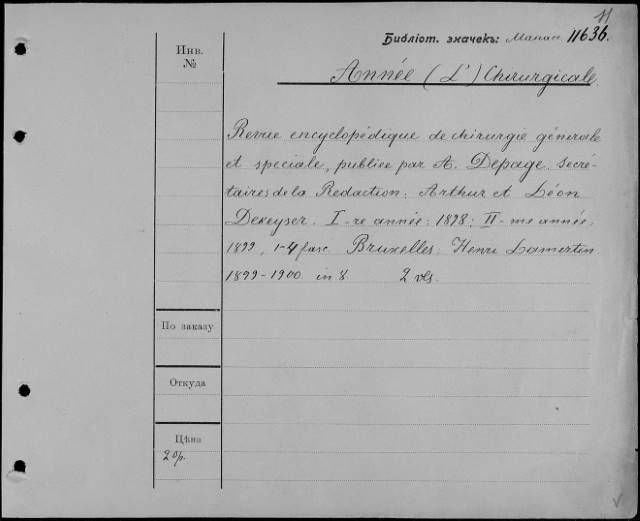 11
Библіот. значекъ: Манан. 11636.
Инв.
№
Année (L') Chirurgicale.
Revue encyclopédique de chirurgie générale
et speciale, publiée par A. Depage. Secré-
taires de la Redaction: Arthur et Léon
Dekeyser. I-re année: 1898; II-me année.
1899, 1-4 fasc. Bruxelles. Henri Lamertin
1899-1900. in 8. 2 vls.
По заказу
Откуда
Цѣна
20р.